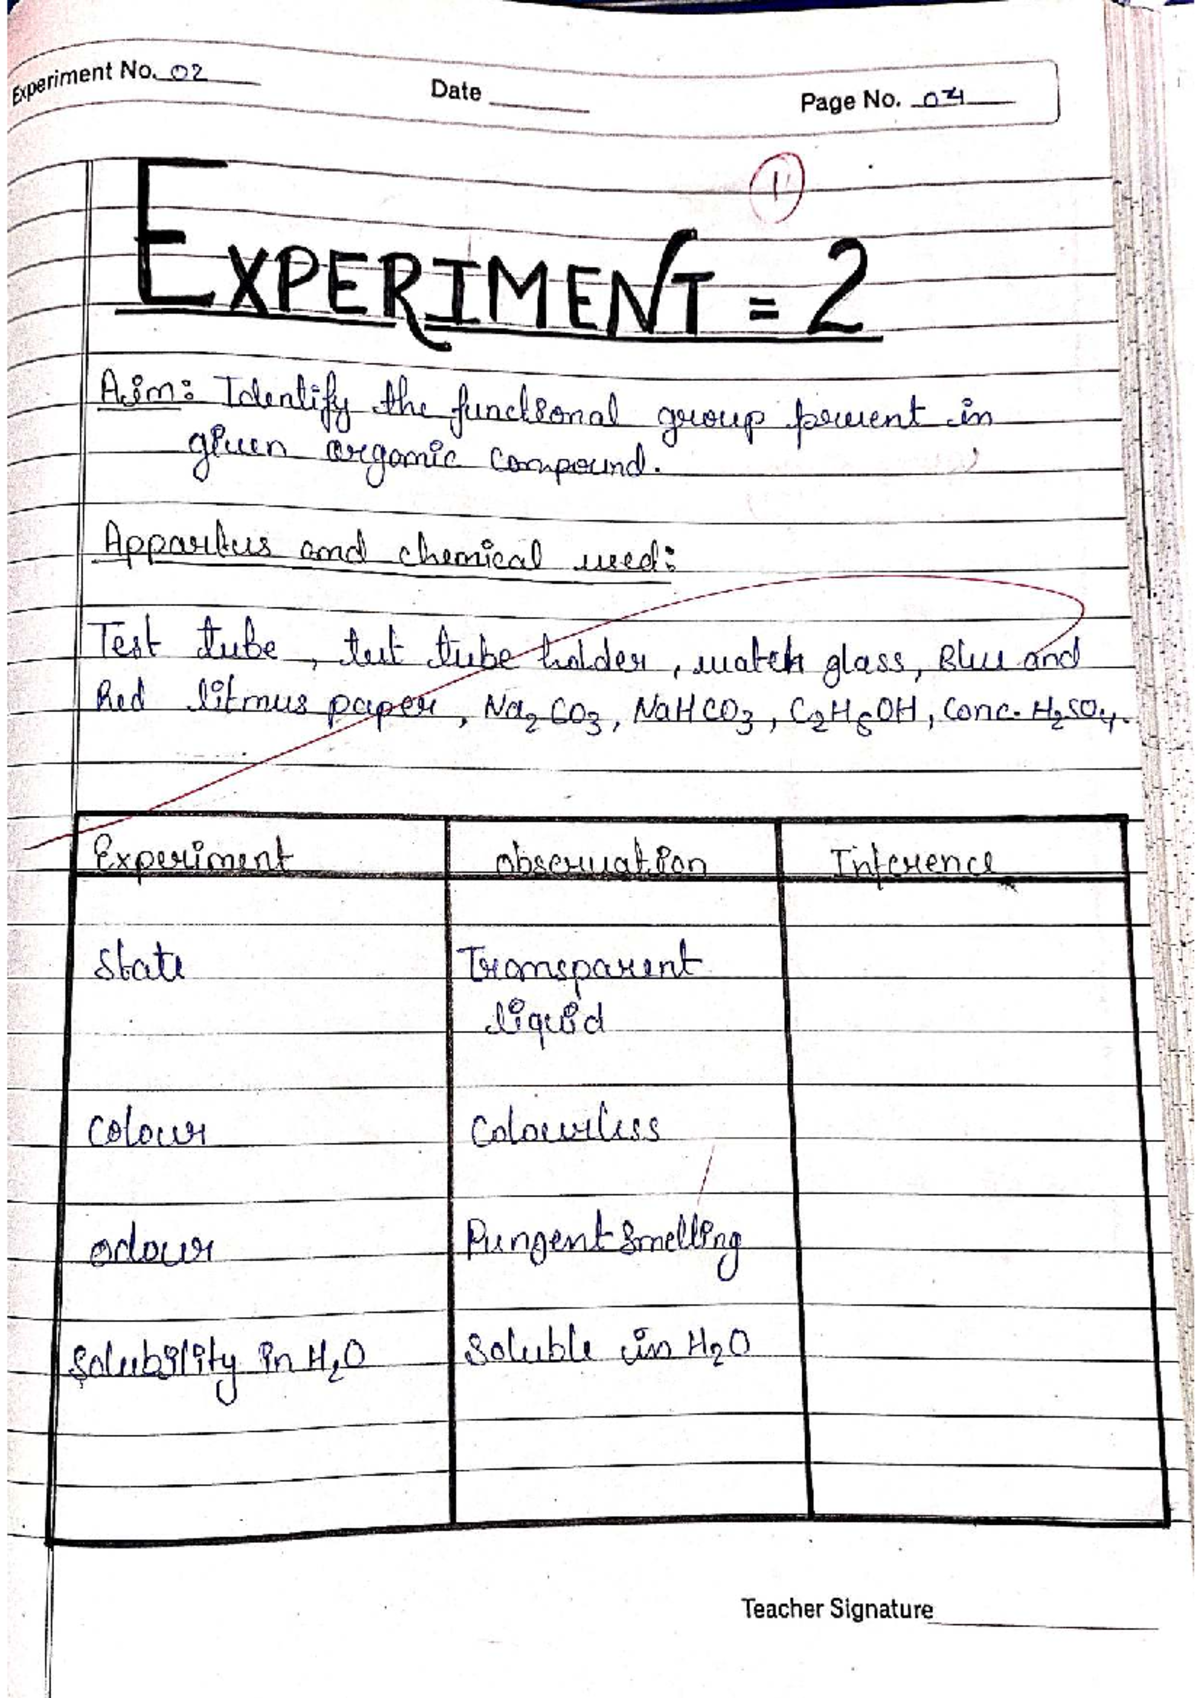 Experiment No. 02 Date Page No. 04
1
EXPERIMENT = 2
Aim: Identify the functional group present in
given organic compound.
Apparatus and chemical used:
Test tube, test tube holder, watch glass, Blue and
Red litmus paper, Na2CO3, NaHCO3, C2H5OH, Conc. H2SO4.
Experiment observation Inference
State Transparent
liquid
Colour Colourless
odour Pungent Smelling
Solubility in H2O Soluble in H2O
Teacher Signature